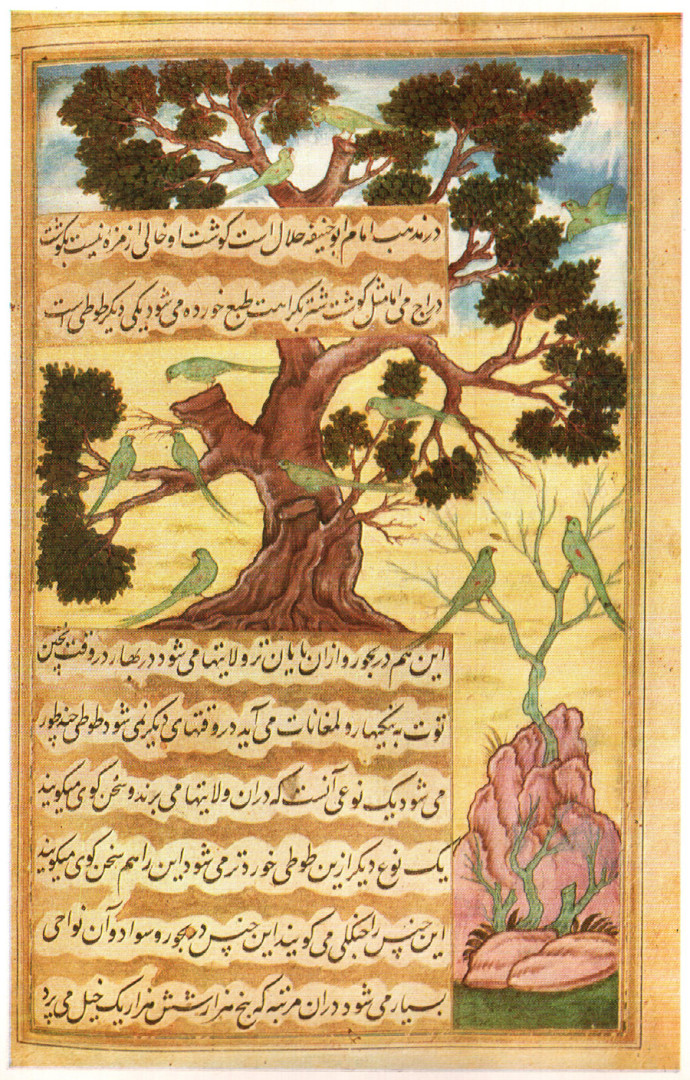 در مذهب امام ابو حنیفه حلال است گوشت او خالی از مزه نیست بگوشت
دراج می اما مثل گوشت شتر بکراهت طبع خورده می شود یکی دیگر طوطی است
این هم در بجور و ازان پایان تر ولایتها می شود در بهار در وقت پختن
توت به ننگنهار و لمغانات می آید در وقتهای دیگر نمی شود طوطی چند طور
می شود یک نوعی آنست که دران ولایتها می برند و سخن گوی میگویند
یک نوع دیگر ازین طوطی خورد تر می شود این را هم سخن گوی میگویند
این جنس را جنگلی می گویند این جنس در بجور و سواد و آن نواحی
بسیار می شود دران مرتبه که پنج هزار شش هزار یک خیل می پرد